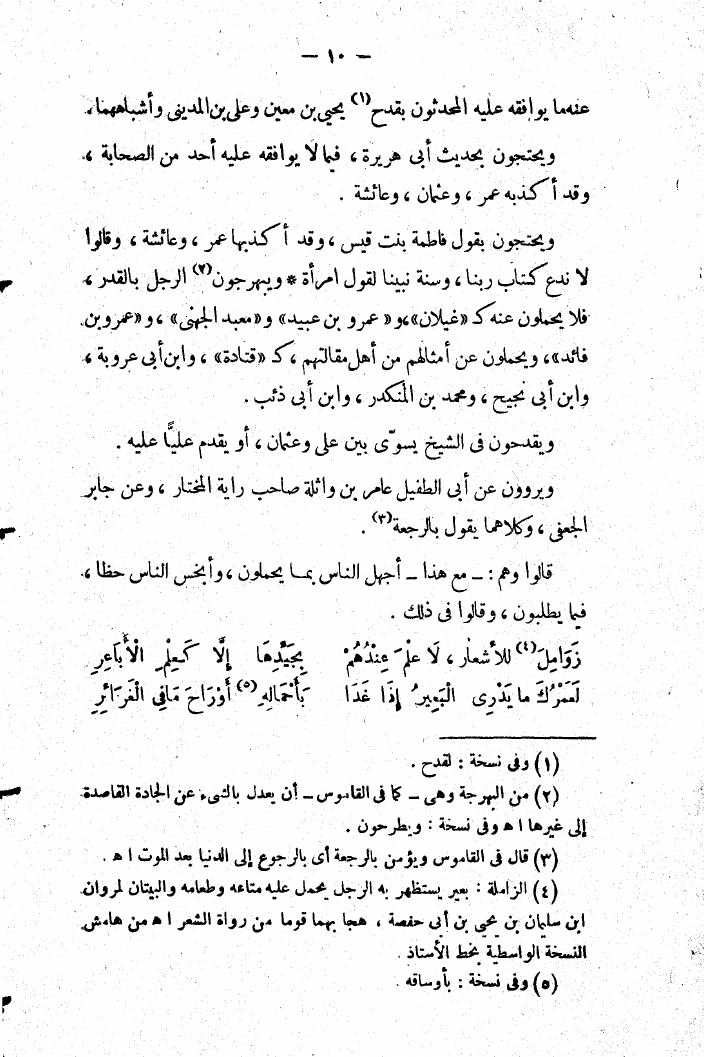 — ١٠ —
عنهما يوافقه عليه المحدثون بقدح(١) يحيى بن معين وعلى بن المدينى وأشباههما،
ويحتجون بحديث أبى هريرة ، فيما لا يوافقه عليه أحد من الصحابة ،
وقد أكذبه عمر ، وعثمان ، وعائشة .
ويحتجون بقول فاطمة بنت قيس ، وقد أكذبها عمر ، وعائشة ، وقالوا
لا ندع كتاب ربنا ، وسنة نبينا لقول امرأة * ويبهرجون(٢) الرجل بالقدر ،
فلا يحملون عنه كـ «غيلان»، و« عمرو بن عبيد» و«معبد الجهنى» ، و«عمرو بن
فائد»، ويحملون عن أمثالهم من أهل مقالتهم ، كـ «قتادة» ، وابن أبى عروبة ،
وابن أبى نجيح ، ومحمد بن المنكدر ، وابن أبى ذئب .
ويقدحون فى الشيخ يسوّى بين على وعثمان ، أو يقدم عليًّا عليه .
ويروون عن أبى الطفيل عامر بن واثلة صاحب راية المختار ، وعن جابر
الجعفى ، وكلاهما يقول بالرجعة(٣) .
قالوا وهم : ــ مع هذا ــ أجهل الناس بمـا يحملون ، وأبخس الناس حظا ،
فيما يطلبون ، وقالوا فى ذلك .
زَوَامِلَ(٤) للأشعار ، لَا عِلْمَ عِنْدَهُمْ بِجَيِّدِهَا إِلَّا كَعِلْمِ الْأَبَاعِرِ
لَعَمْرُكَ مَا يَدْرِى الْبَعِيرُ إِذَا غَدَا بِأَحْمَالِهِ(٥) أَوْ رَاحَ مَا فِى الْغَرَائِرِ
(١) وفى نسخة : لقدح .
(٢) من البهرجة وهى ــ كما فى القاموس ــ أن يعدل بالشىء عن الجادة القاصدة
إلى غيرها ا ھ وفى نسخة : ويطرحون .
(٣) قال فى القاموس ويؤمن بالرجعة أى بالرجوع إلى الدنيا بعد الموت ا ھ .
(٤) الزاملة : بعير يستظهر به الرجل يحمل عليه متاعه وطعامه والبيتان لمروان
ابن سليمان بن يحيى بن أبى حفصة ، هجا بهما قوما من رواة الشعر ا ھ من هامش
النسخة الواسطية بخط الأستاذ .
(٥) وفى نسخة : بأوساقه .